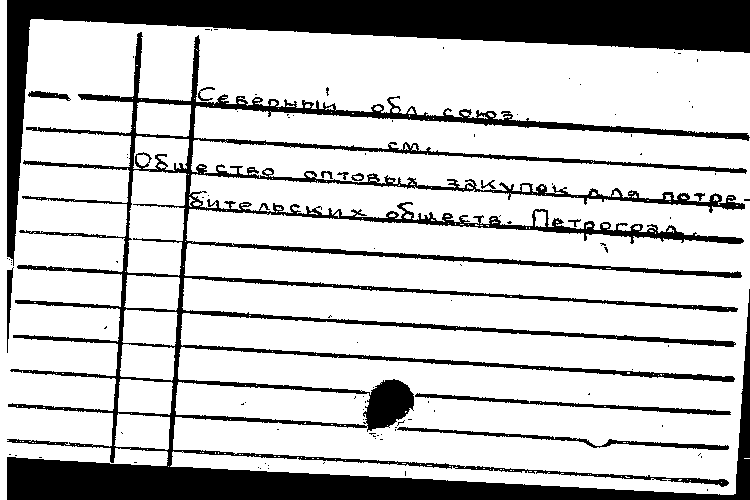 Северный обл. союз.
см.
Общество оптовых закупок для потре-
бительских обществ. Петроград.